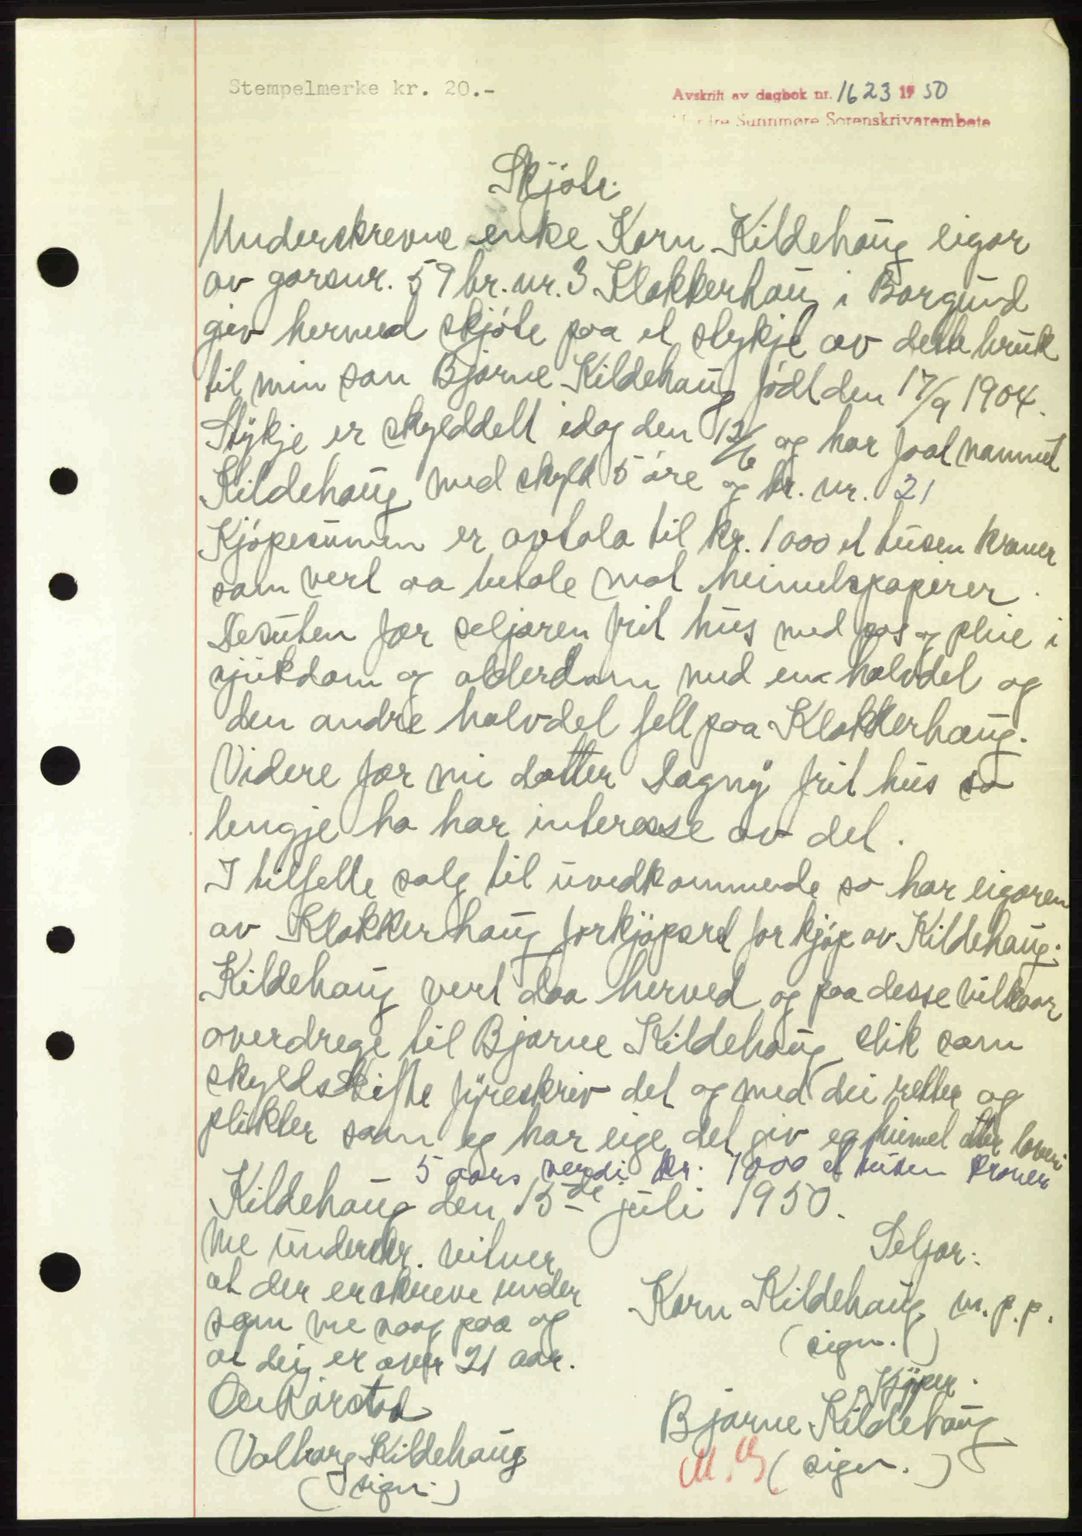 Stempelmerke kr. 20.-
Avskrift av dagbok nr. 1623 1950
Sunnmøre Sorenskrivarembete
Skjøte.
Underskrevne enke Karn Kildehaug eigar
av garsnr. 59 br. nr. 3 Klokkerhaug i Borgund
giev hermed skjøte paa et stykje av dette bruk
til min son Bjarne Kildehaug født den 17/9 1904.
Stykje er skylddelt idag den 12/6 og har faat namnet
Kildehaug med skyld 5 øre og br. nr. 21
Kjøpesumen er avtala til kr. 1000 et tusen kroner
som vert aa betale mot heimelspapirer.
Desuten fær seljaren frit hus med pas og pleie i
sjukdom og alderdom med en halvdel og
den andre halvdel fell paa Klokkerhaug.
Videre fær mi dotter Dagny frit hus so
lengje ho har interesse av det.
I tilfelle salg til uvedkommende so har eigaren
av Klokkerhaug forkjøpsret for kjøp av Kildehaug.
Kildehaug vert daa herved og paa desse vilkaar
overdrege til Bjarne Kildehaug slik som
skyldskifte fyreskriv det og med dei retter og
plikter som eg har eige det giv eg heimel etter loven
5 aars verdi kr. 1000 et tusen kroner
Kildehaug den 15de juli 1950.
Me underskr. vitner
at der er skreve under
som me saag paa og
at dei er over 21 aar.
Valborg Kildehaug
(sign.)
Seljar:
Karn Kildehaug m. p. p.
(sign.)
Kjøper.
Bjarne Kildehaug
(sign.)